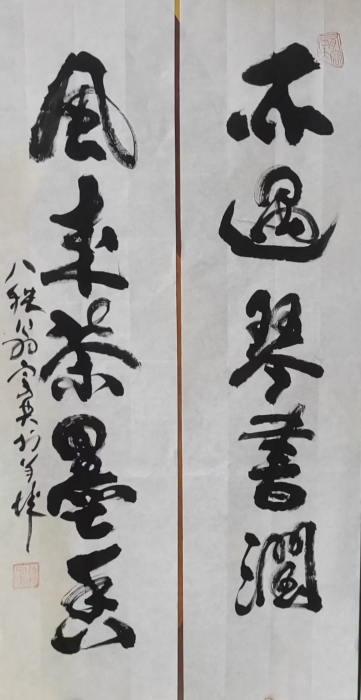 雨過琴書潤
風來茶墨香
八秩翁